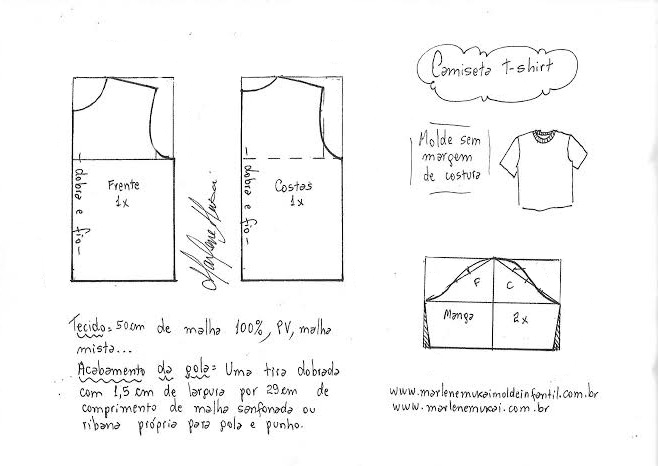 Camiseta t-shirt
Molde sem
margem
de costura
Frente
1x
- dobra e fio -
Marlene Mukai
Costas
1x
- dobra e fio -
F
C
Manga
2x
Tecido= 50cm de malha 100%, PV, malha
mista...
Acabamento da gola= Uma tira dobrada
com 1,5 cm de largura por 29cm de
comprimento de malha sanfonada ou
ribana própria para gola e punho.
www.marlenemukaimoldeinfantil.com.br
www.marlenemukai.com.br